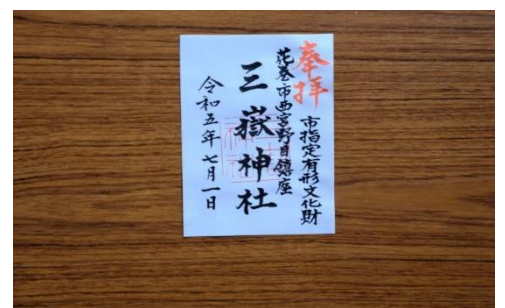 奉拝
市指定有形文化財
花巻市西宮野目鎮座
三嶽神社
令和五年七月一日